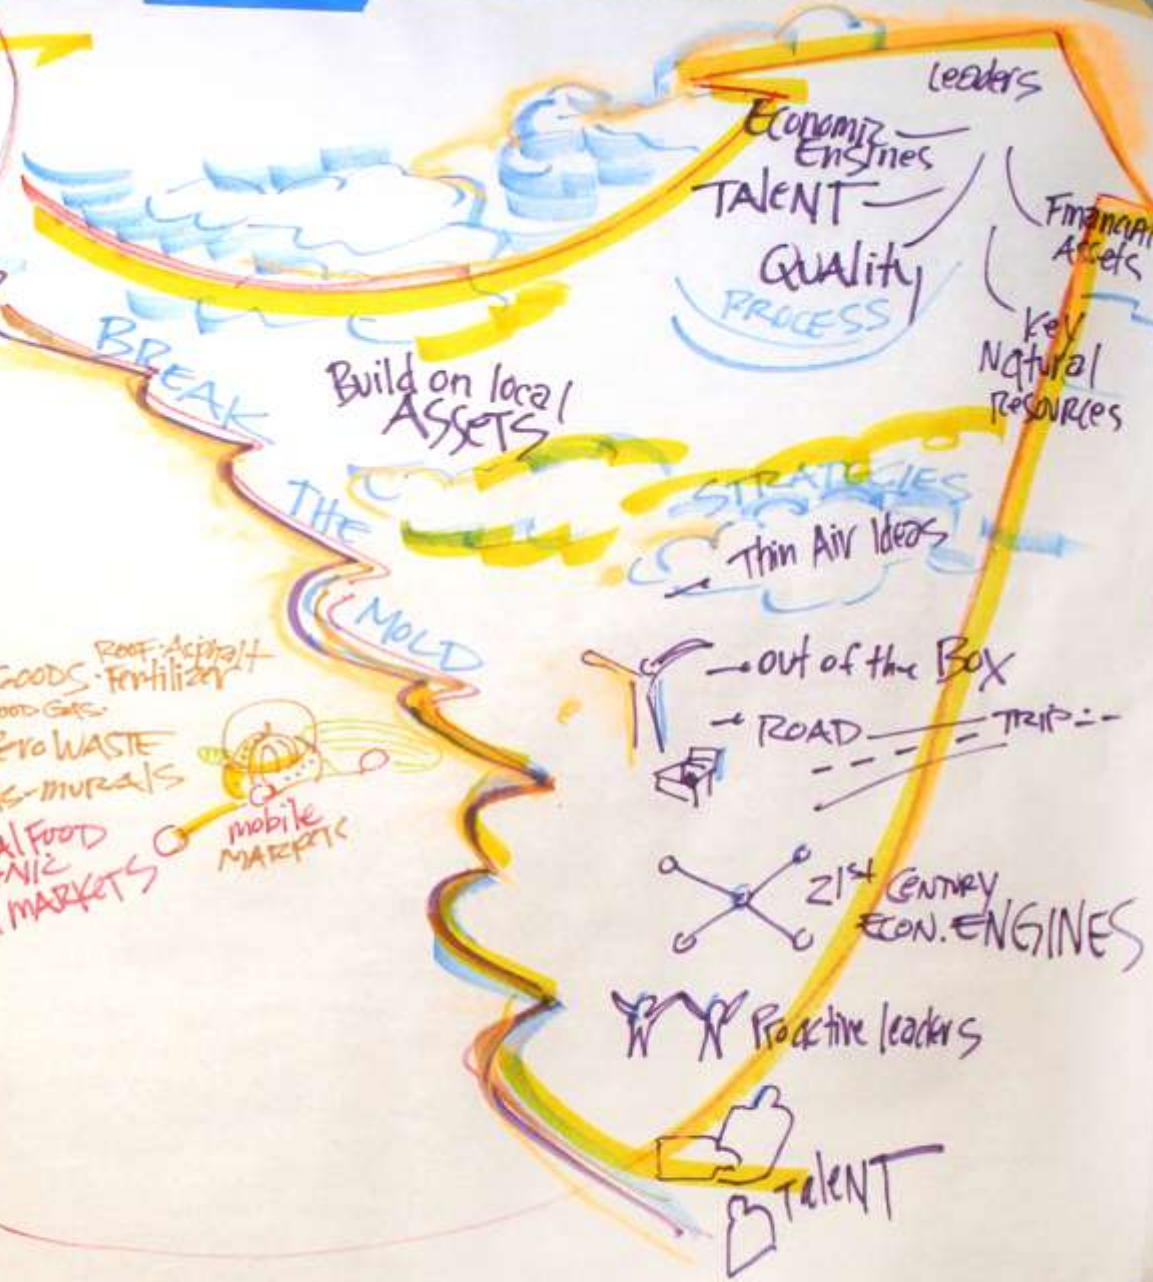 Leaders
Economic
Engines
TALENT
QUALITY
PROCESS
Financial
Assets
Key
Natural
Resources
BREAK
THE
MOLD
Build on local
ASSETS
STRATEGIES
Thin Air Ideas
out of the Box
ROAD TRIP
21st CENTURY
ECON. ENGINES
Proactive leaders
TaleNT
ROOF: Asphalt
GOODS · Fertilizer
WASTE
-MURALS
FOOD
MARKETS
mobile
MARKETS